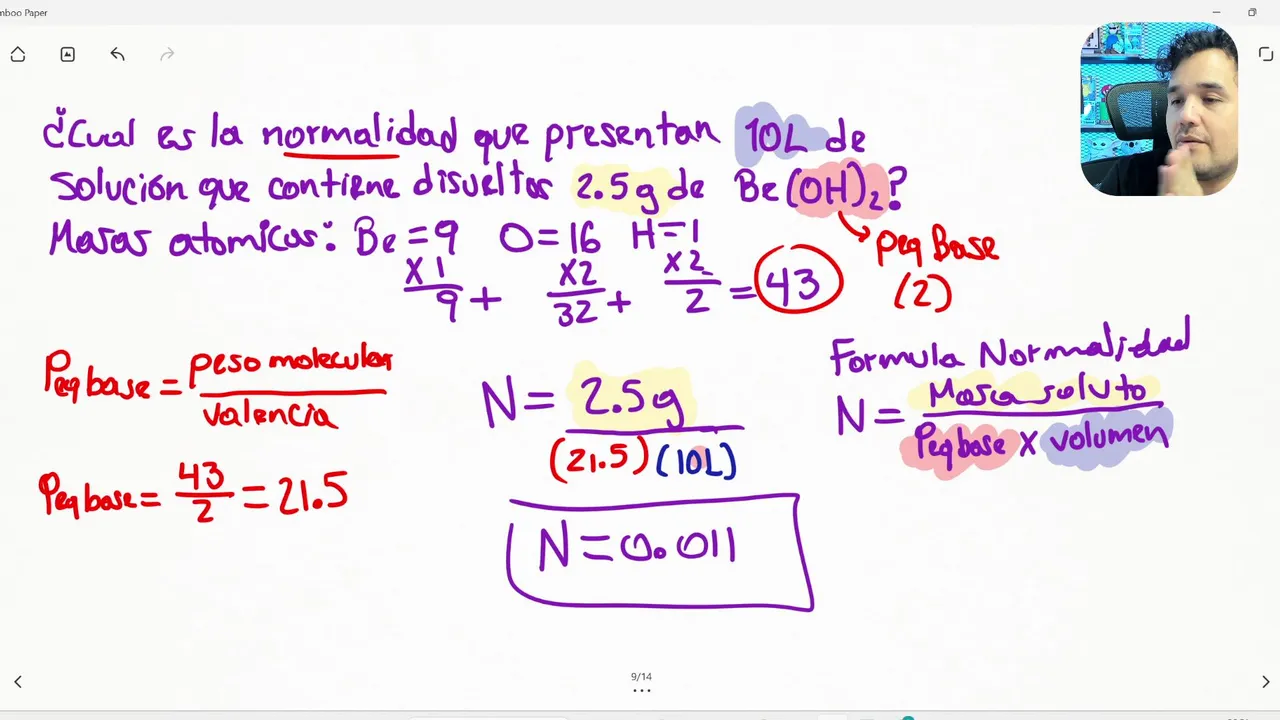 mboo Paper
¿Cual es la normalidad que presentan 10L de
solución que contiene disueltos 2.5g de Be(OH)₂?
Masas atomicas: Be = 9 O = 16 H = 1
x 1 x2 x2
9 + 32 + 2 = 43
peq Base
(2)
Peq base = peso molecular
valencia
Peq base = 43
2 = 21.5
N = 2.5g
(21.5) (10L)
N = 0.011
Formula Normalidad
N = Masa soluto
Peq base x volumen
9/14